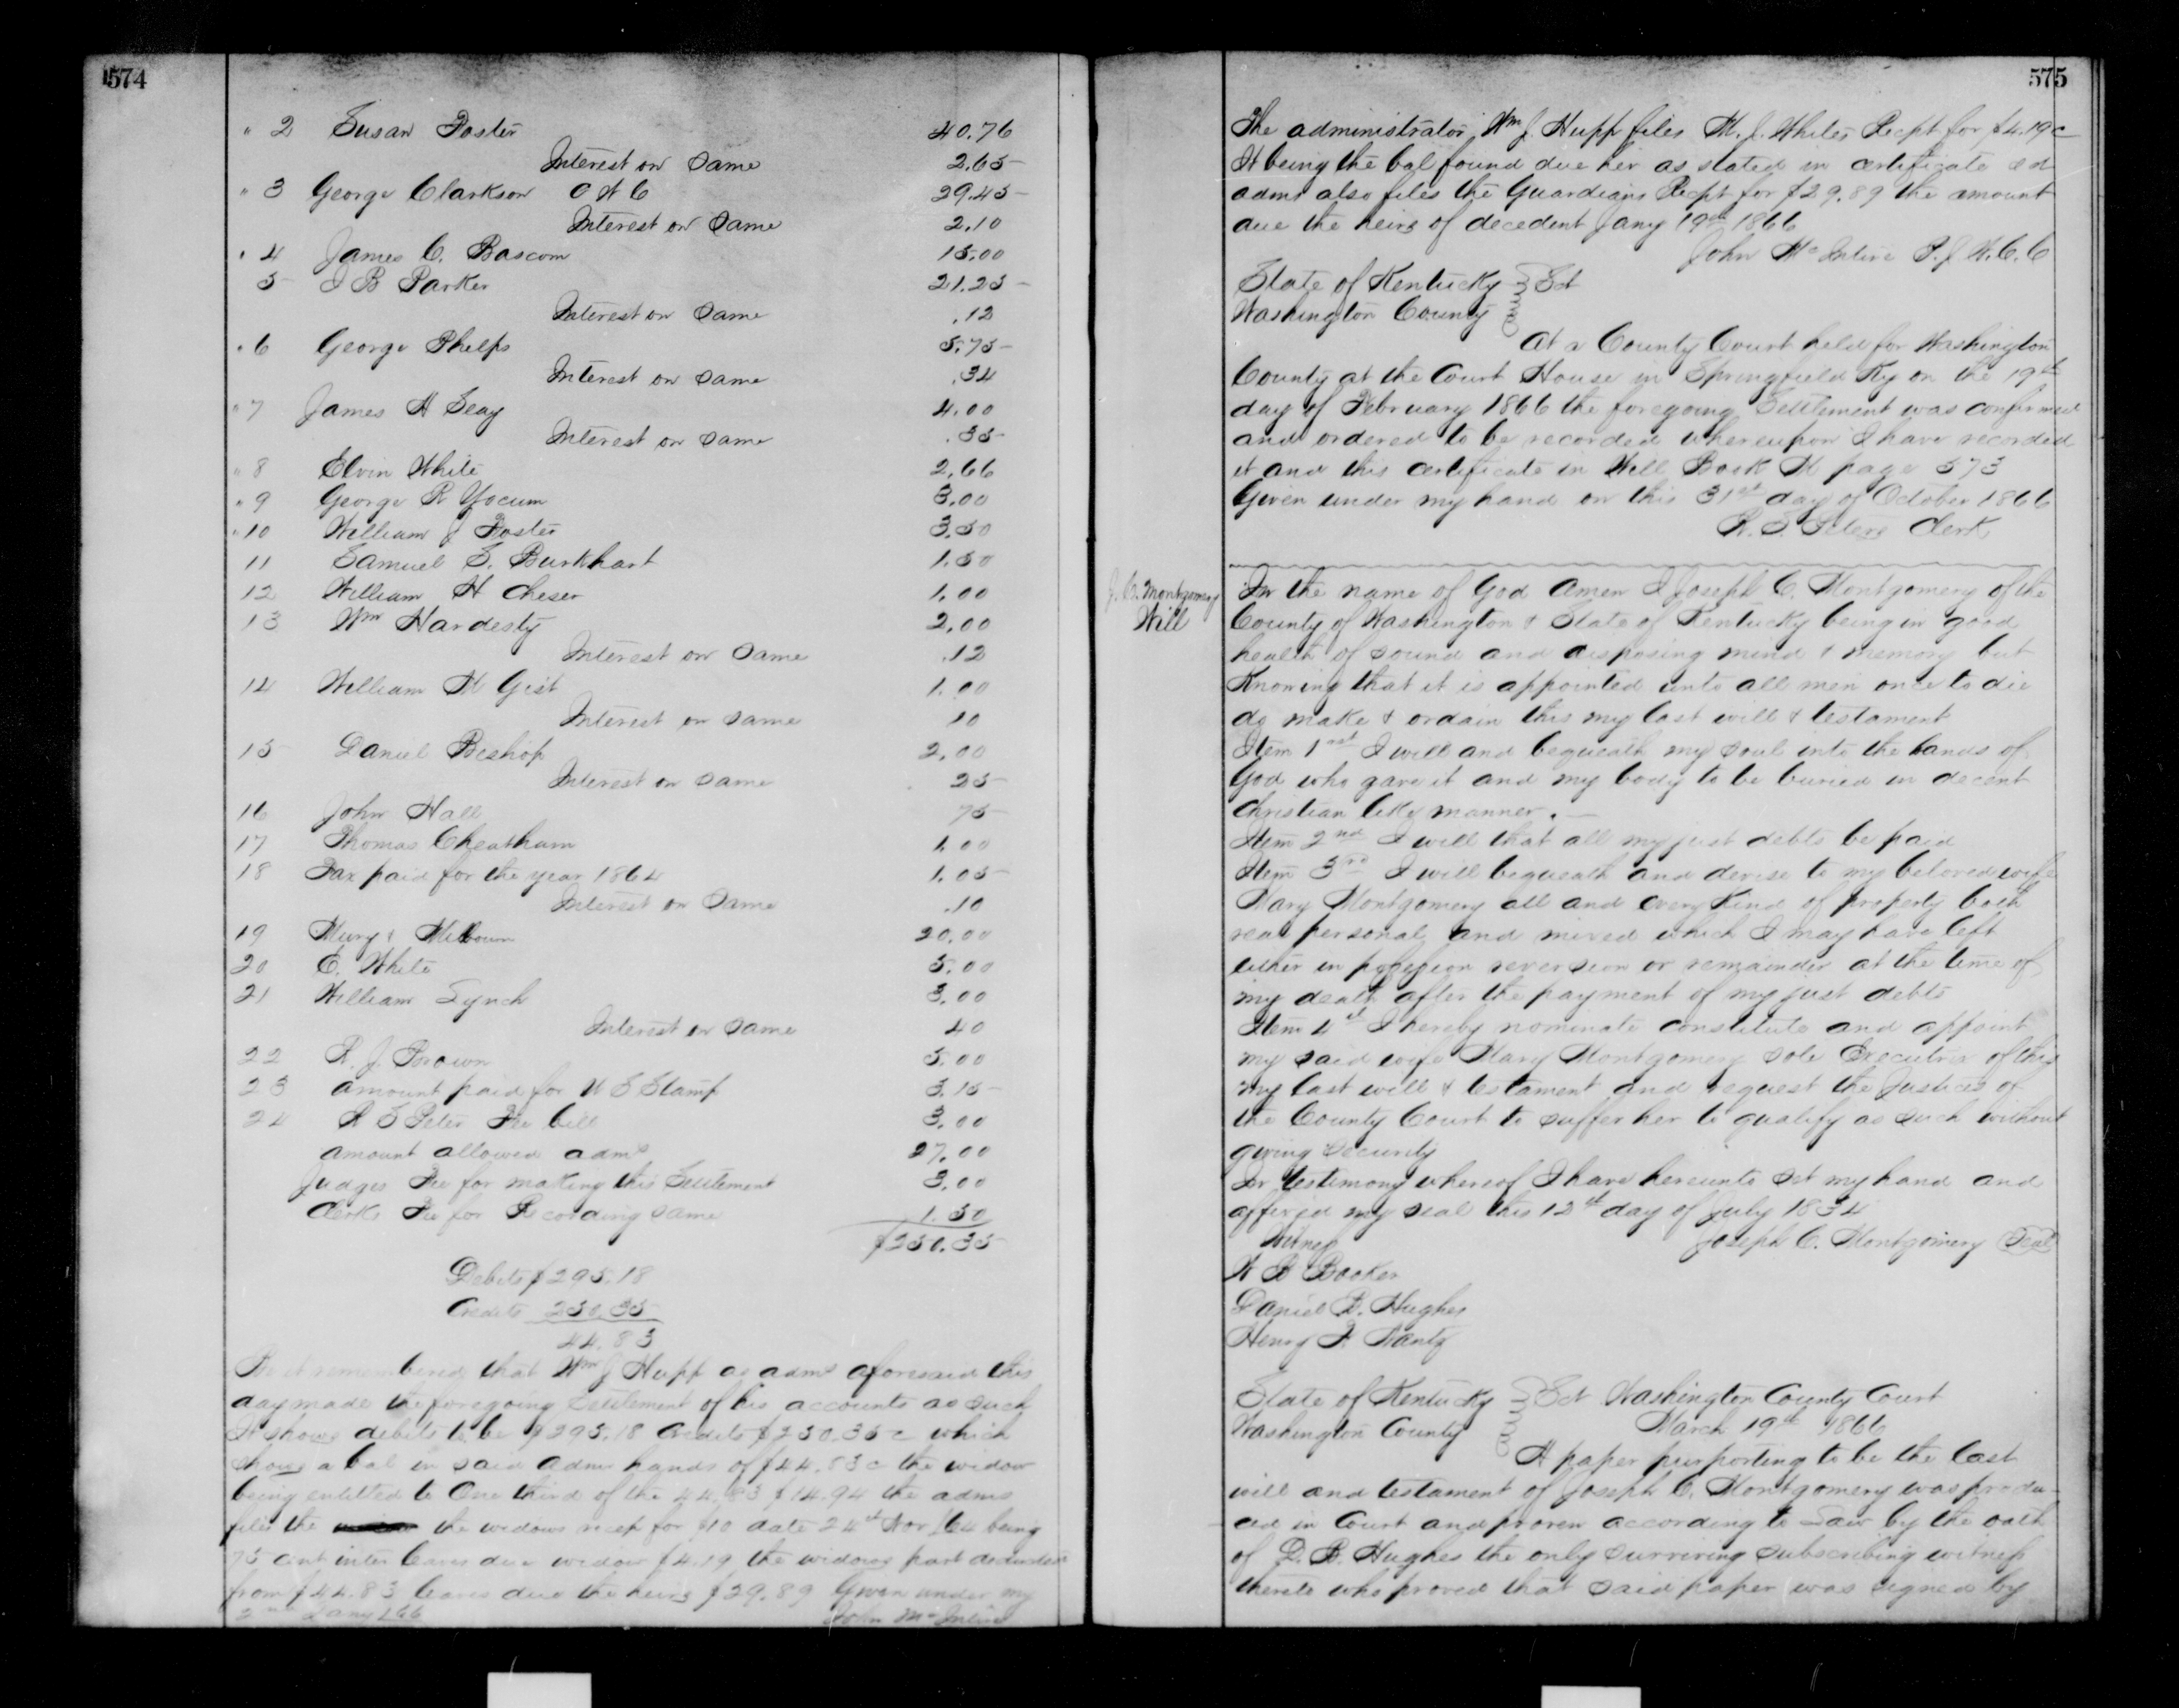 574
" 2 Susan Foster 40.76
Interest on Same 2.65
" 3 George Clarkson 29.45
Interest on Same 2.10
" 4 James C. Bascom 15.00
5 J B Parker 21.25
Interest on Same .12
" 6 George Phelps 5.75
Interest on Same .34
" 7 James H Seay 4.00
Interest on Same .35
" 8 Elvin White 2.66
" 9 George R Yocum 3.00
" 10 William J Foster 3.50
11 Samuel S. Burkhart 1.50
12 William H Cheser 1.00
13 Wm Hardesty 2.00
Interest on Same .12
14 William M Gist 1.00
Interest on Same 10
15 Daniel Bishop 2.00
Interest on Same 25
16 John Hall 75
17 Thomas Cheatham 1.00
18 Tax paid for the year 1864 1.05
Interest on Same .10
19 & Milbourn 20.00
20 E. White 5.00
21 William Lynch 3.00
Interest on Same 40
22 R. J. Brown 5.00
23 amount paid for U S Stamp 3.15
24 R S Peter Fee bill 3.00
amount allowed admr 27.00
Judges Fee for making this Settlement 3.00
Clerks Fee for Recording same 1.50
$250.35
Debits $295.18
Credits 250.35
44.83
Be it remembered that Wm J Hupp as admr aforesaid this
day made the foregoing Settlement of his accounts as such
It shows debits to be $295.18 Credits $250.35 c which
shows a bal in said admr hands of $44.83 c the widow
being entitled to One third of the 44.83 $14.94 the admr
files the the widows recep for $10 date 24th Nov /64 being
75 cent inter leaves due widow $4.19 the widows part deducted
from $44.83 leaves due the heirs $29.89 Given under my
2nd Jany 1866 John McIntire
575
The administrator Wm J. Hupp files M. J. Whites Recpt for $4.19 c
It being the bal found due her as stated in certificate and
admr also files the Guardians Recpt for $29.89 the amount
due the heirs of decedent Jany 19th 1866
John McIntire P. J. W. C. C
State of Kentucky } Sct
Washington County
At a County Court held for Washington
County at the Court House in Springfield Ky on the 19th
day of February 1866 the foregoing Settlement was confirmed
and ordered to be recorded whereupon I have recorded
it and this certificate in Will Book page 573
Given under my hand on this 31st day of October 1866
Clerk
J. C. Montgomery
Will
In the name of God Amen I Joseph C. Montgomery of the
County of Washington & State of Kentucky being in good
health of sound and disposing mind & memory but
Knowing that it is appointed unto all men once to die
do make & ordain this my last will & testament
Item 1st I will and bequeath my soul into the hands of
God who gave it and my body to be buried in decent
Christian like manner. —
Item 2nd I will that all my just debts be paid
Item 3rd I will bequeath and devise to my beloved wife
Mary Montgomery all and every Kind of property both
real personal and mixed which I may have left
either in possession reversion or remainder at the time of
my death after the payment of my just debts
Item 4th I hereby nominate constitute and appoint
my said wife Mary Montgomery sole Executrix of this
my last will & testament and request the Justices of
the County Court to suffer her to qualify as such without
giving security
In testimony whereof I have hereunto set my hand and
affixed my seal this 12th day of July 1834
Witness Joseph C. Montgomery Seal
Booker
Daniel B. Hughes
Henry
State of Kentucky } Sct Washington County Court
Washington County March 19th 1866
A paper purporting to be the last
will and testament of Joseph C. Montgomery was produ-
ced in Court and proven according to Law by the oath
of D. B. Hughes the only surviving subscribing witness
thereto who proved that said paper was signed by